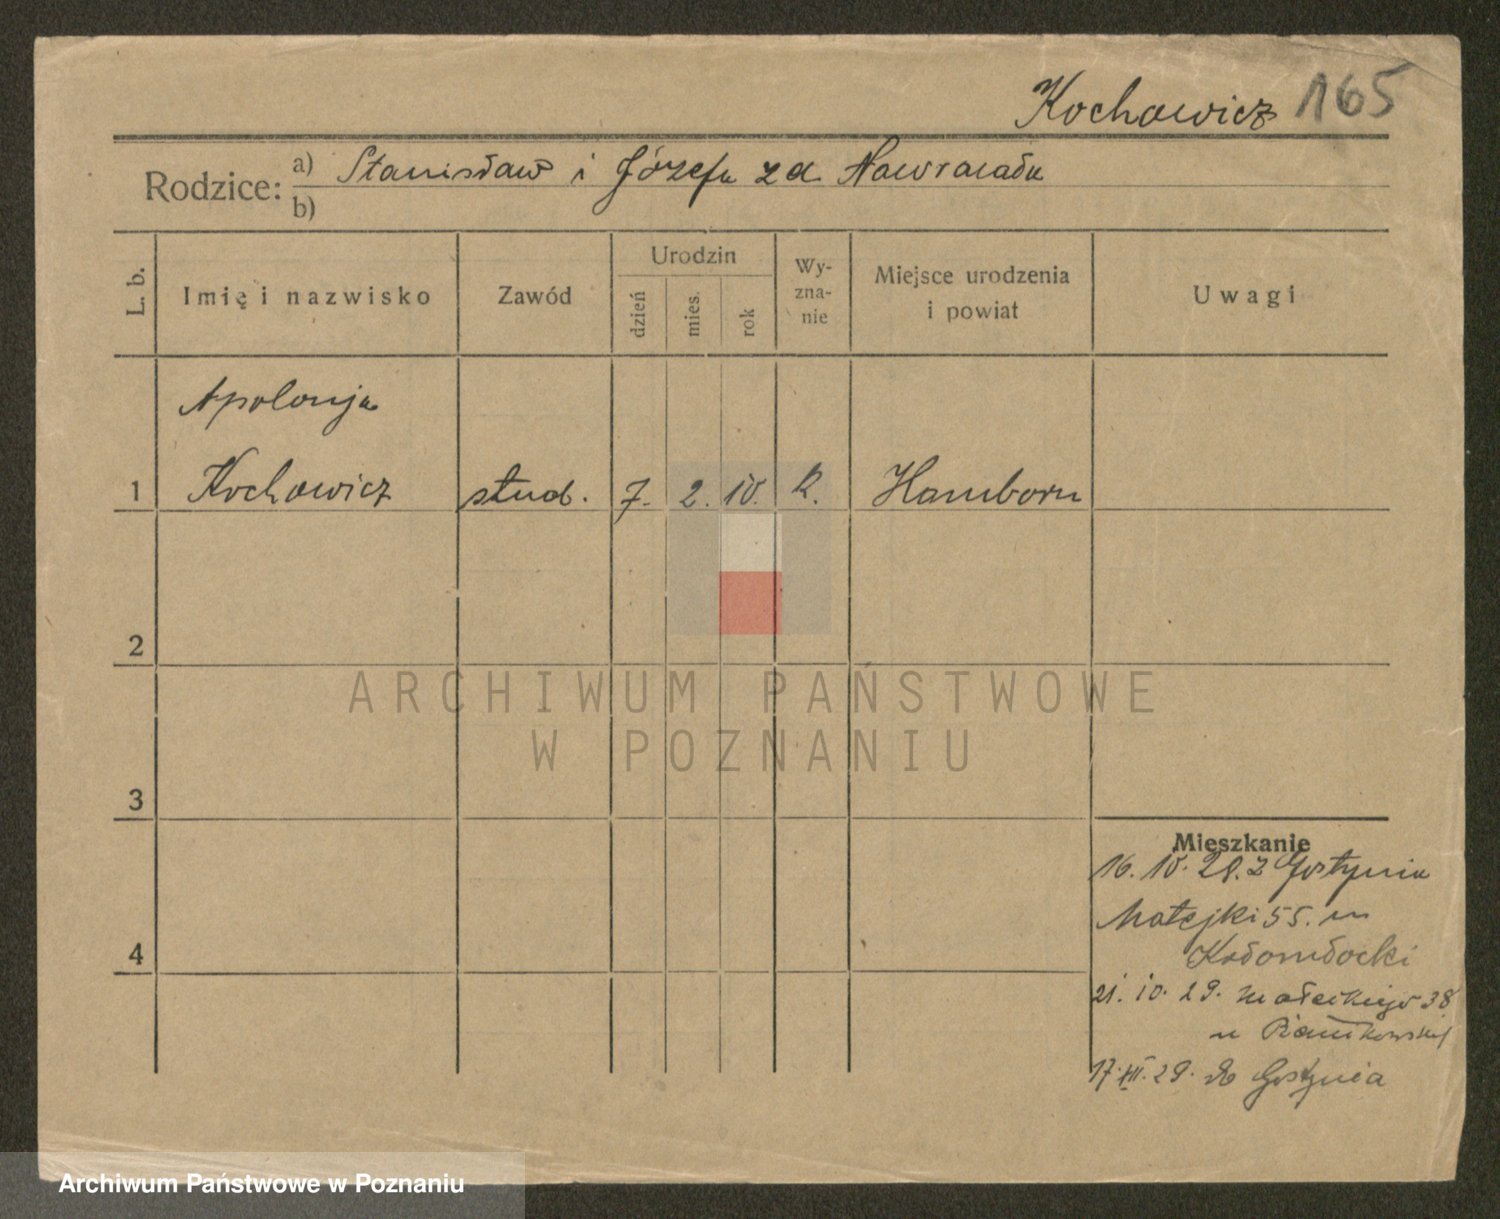 Kochowicz 165
Rodzice: a) Stanisław i Józefa z d. Nawracała
b)
L. b.
Imię i nazwisko
Zawód
Urodzin
dzień
mies.
rok
Wy-
zna-
nie
Miejsce urodzenia
i powiat
Uwagi
Apolonja
1 Kochowicz stud. 7. 2. 10. k. Hamborn
2
ARCHIWUM PAŃSTWOWE
W POZNANIU
3
Mieszkanie
16. 10. 28. z Gostynia
Matejki 55. m
4
21. 10. 29. Małeckiego 38
u
17.XII.29. do Gostynia
Archiwum Państwowe w Poznaniu